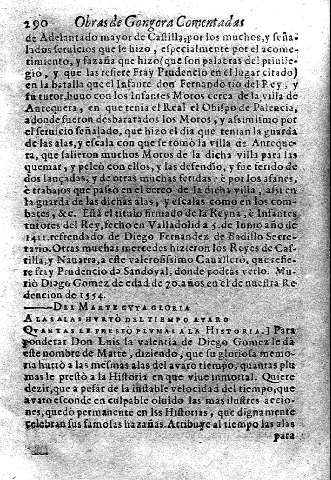 290 Obras de Gongora Comentadas
de Adelantado mayor de Castilla, por los muchos, y seña-
lados servicios que le hizo, especialmente por el acome-
timiento, y fazaña que hizo (que son palabras del privile-
gio, y que las refiere Fray Prudencio en el lugar citado)
en la batalla que el Infante don Fernando tio del Rey, y
su tutor, huuo con los Infantes Moros cerca de la villa de
Antequera, en que tenia el Real el Obispo de Palencia,
adonde fueron desbaratados los Moros, y assimismo por
el seruicio señalado, que hizo el dia que tenian la guarda
de las alas, y escala con que se tomò la villa de Anteque-
ra, que salieron muchos Moros de la dicha villa para las
quemar, y peleò con ellos, y las defendio, y fue ferido de
dos lançadas, y de otras muchas feridas: è por los afanes,
è trabajos que passò en el cerco de la dicha villa, assi en
la guarda de las dichas alas, y escalas como en los com-
bates, &c. Està el titulo firmado de la Reyna, è Infantes
tutores del Rey, fecho en Valladolid a 5. de Iunio año de
1411. refrendado de Diego Fernandez de Badillo Secre-
tario. Otras muchas mercedes hizieron los Reyes de Cas-
tilla, y Nauarra, a este valerosissimo Cauallero, que refie-
re fray Prudencio de Sandoual, donde podras verlo. Mu-
riò Diago Gomez de edad de 70. años en el de nuestra Re
dencion de 1554.
DEL MARTE CUYA GLORIA
A LAS ALAS HURTÒ DEL TIEMPO AVARO
QUANTAS LE PRESTÒ PLUMAS A LA HISTORIA.] Para
ponderar Don Luis la valencia de Diego Gomez le da
este nombre de Marte, diziendo, que su gloriosa memo-
ria hurtò a las mesmas alas del avaro tiempo, quantas plu
mas le prestò a la Historia en que viue inmortal. Quiere
dezir, que a pesar de la instable velocidad del tiempo, que
auaro esconde en culpable oluido las mas ilustres accio-
nes, quedò permanente en las Historias, que dignamente
celebran sus famosas hazañas. Atribuye al tiempo las alas
para